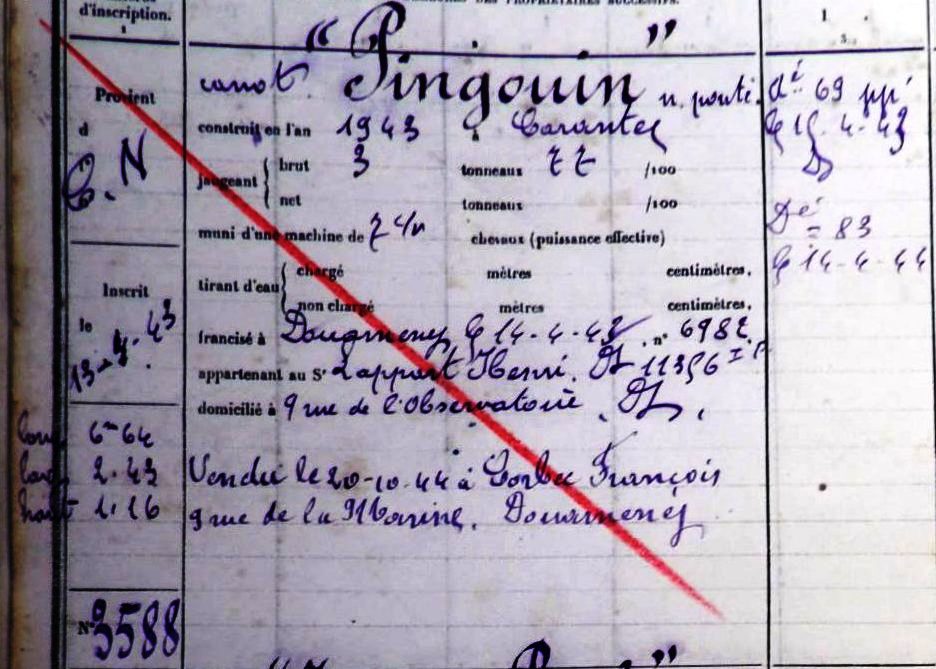 d'inscription.
1
DES PROPRIÉTAIRES SUCCESSIFS.
1
3
Provient
d
C. N
Inscrit
le
13-4-43.
long 6m 64
larg 2.43
haut 1.16
N° 3588
" Pingouin "
canot n. ponté.
construit en l'an 1943 à Carantec
jaugeant { brut 3 tonneaux 77 /100
net tonneaux /100
muni d'une machine de 7 c/v chevaux (puissance effective)
tirant d'eau { chargé mètres centimètres.
non chargé mètres centimètres.
francisé à Douarnenez le 14-4-43 n° 6982
appartenant au Sr Lappart Henri. DZ 11356
domicilié à 9 rue de l'Observatoire. DZ.
Vendu le 20-10-44 à François
9 rue de la Marine. Douarnenez
dé 69
le 15-4-43
DZ
Dé = 83
le 14-4-44